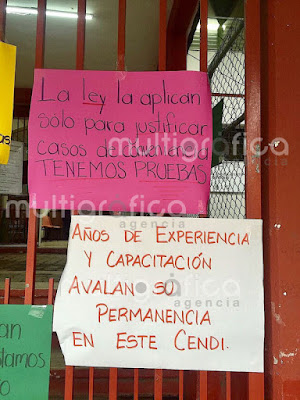 La ley la aplican
solo para justificar
casos de conveniencia
TENEMOS PRUEBAS
multigráfica
agencia
AÑOS DE EXPERIENCIA
Y CAPACITACIÓN
AVALAN SU
PERMANENCIA
EN ESTE CENDI.
multigráfica
agencia